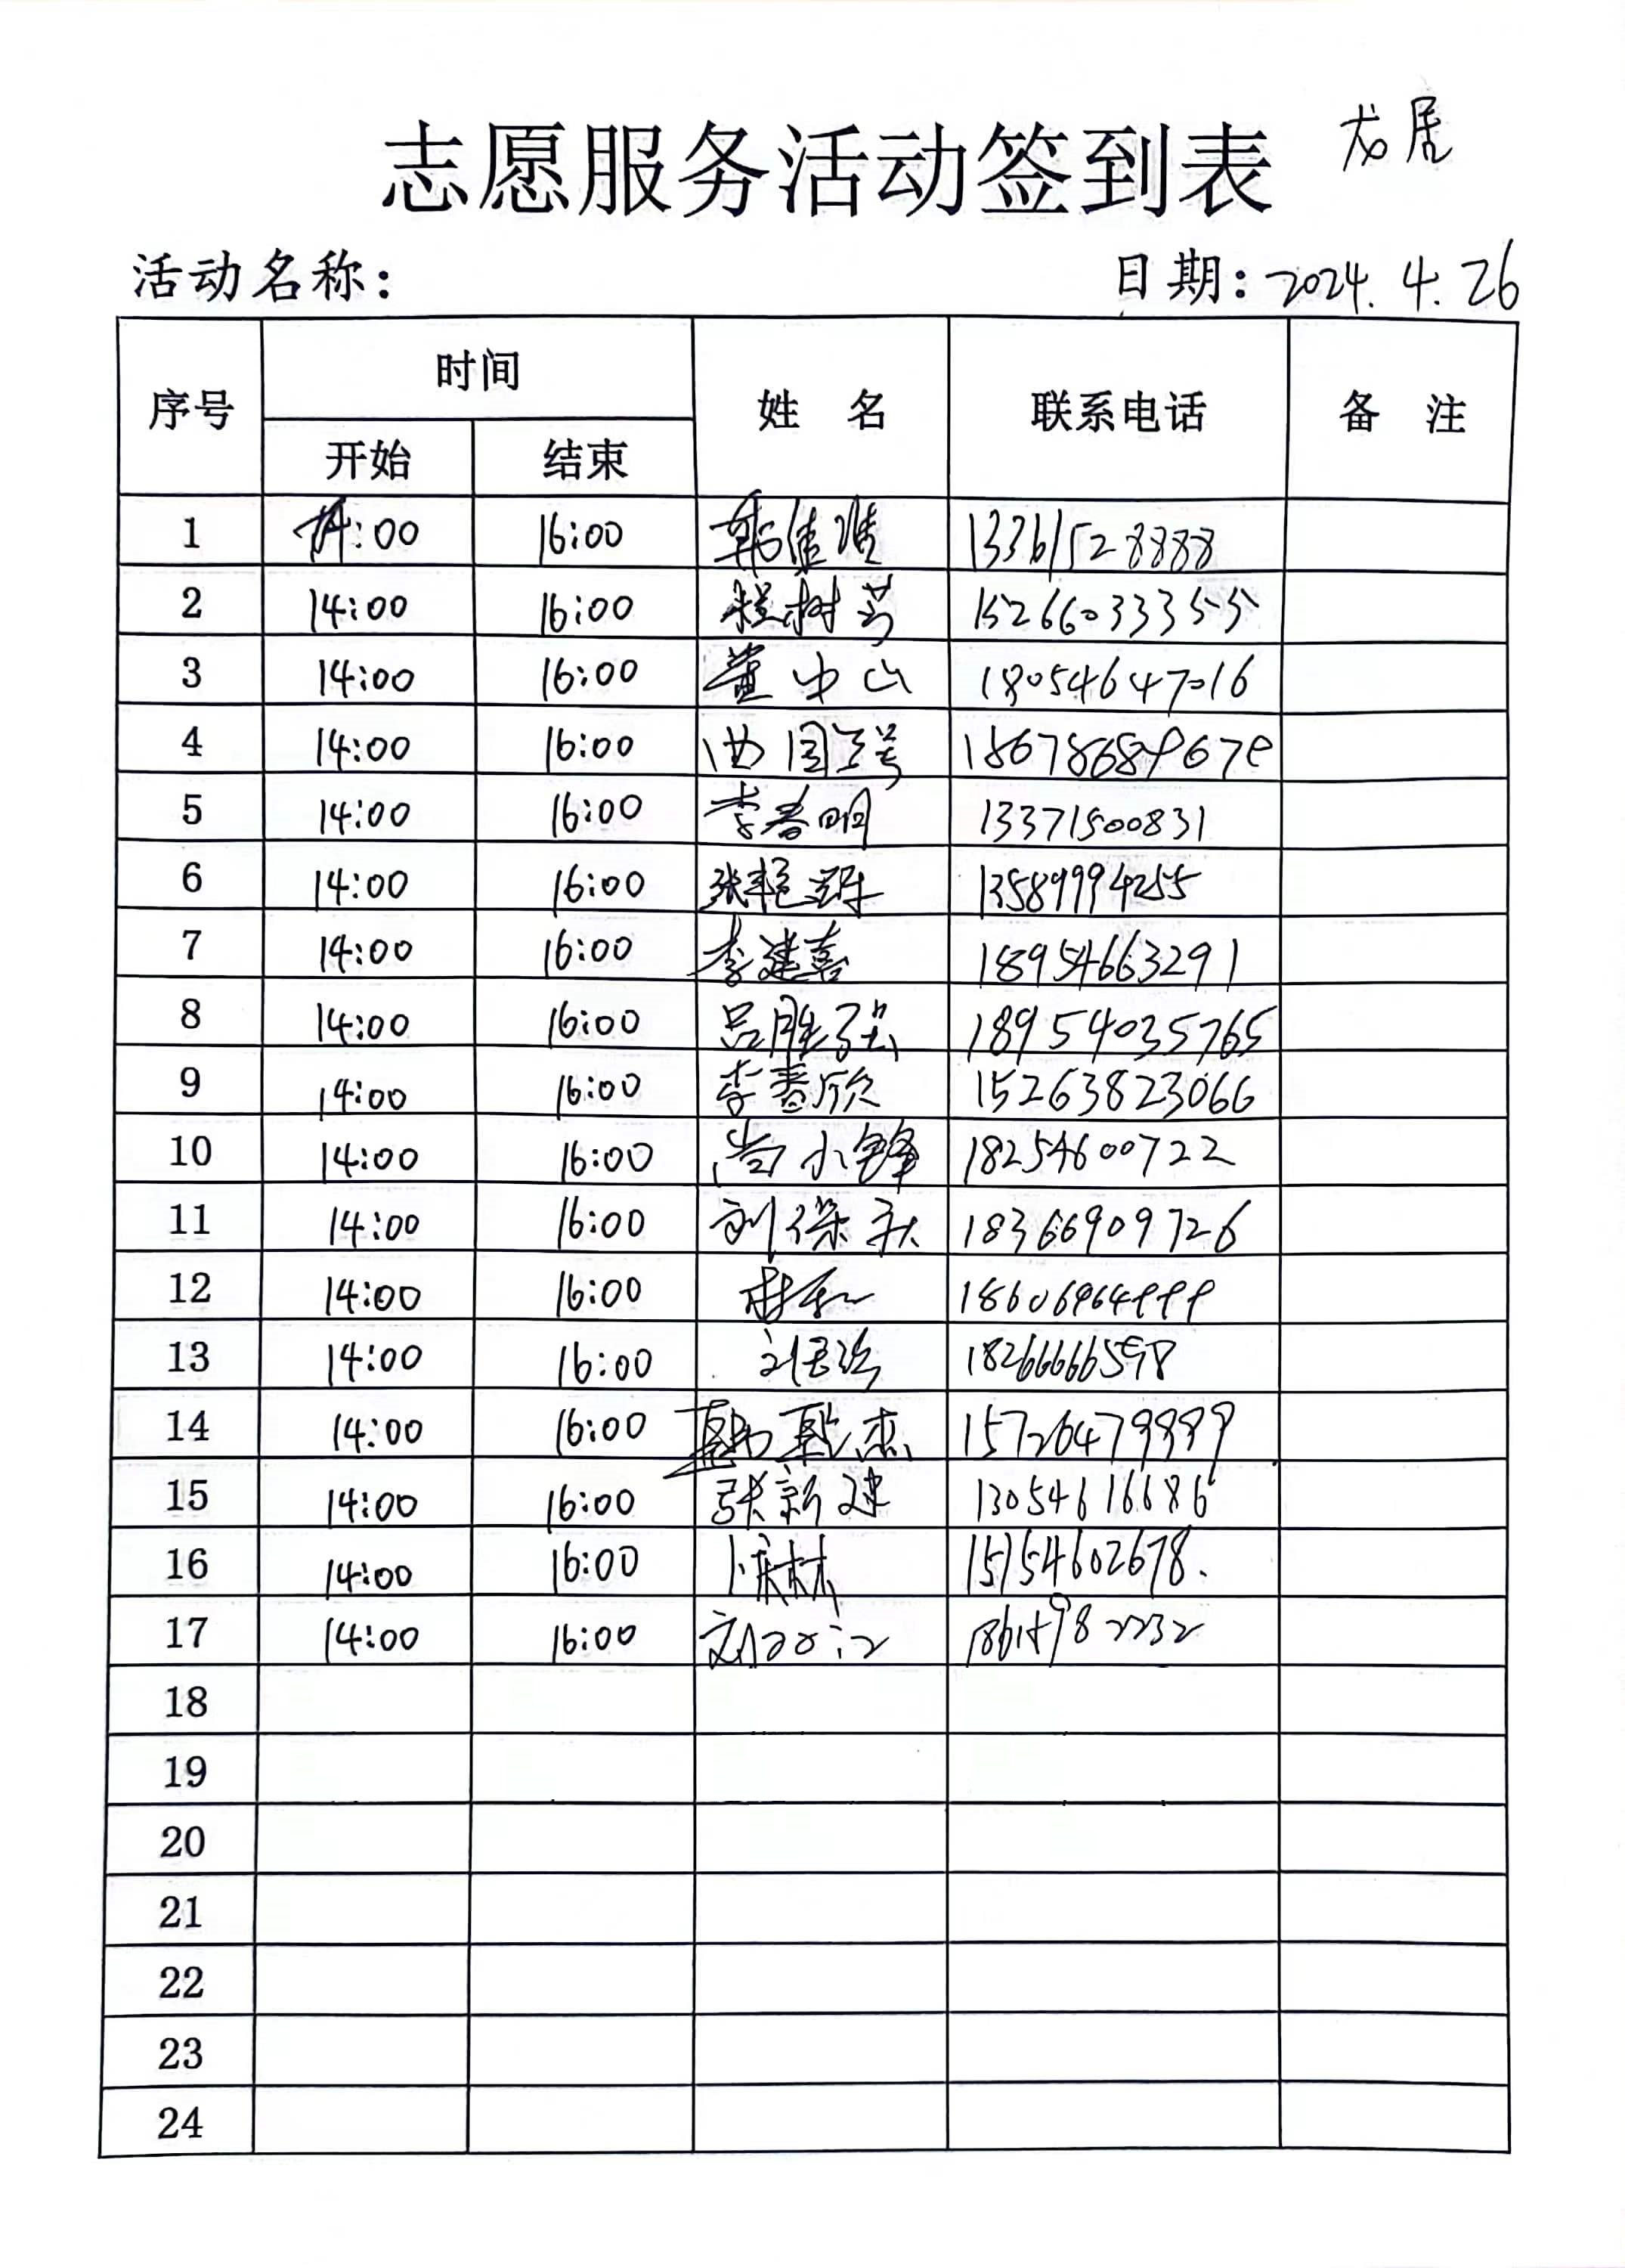 龙居
志愿服务活动签到表
活动名称： 日期：2024.4.26
序号 时间 姓 名 联系电话 备 注
开始 结束
1 14:00 16:00 13361528888
2 14:00 16:00 程树芳 15266033355
3 14:00 16:00 董中山 18054647016
4 14:00 16:00 曲国强
5 14:00 16:00 李春明 13371500831
6 14:00 16:00 张艳 13589994255
7 14:00 16:00 李建嘉 18954663291
8 14:00 16:00 吕胜强 18954035765
9 14:00 16:00 李春欣 15263823066
10 14:00 16:00 尚小锋 18254600722
11 14:00 16:00 刘保 18366909726
12 14:00 16:00
13 14:00 16:00 18266666598
14 14:00 16:00 韩乾杰 15726479999
15 14:00 16:00 张新建 13054616686
16 14:00 16:00 15154602678.
17 14:00 16:00
18
19
20
21
22
23
24